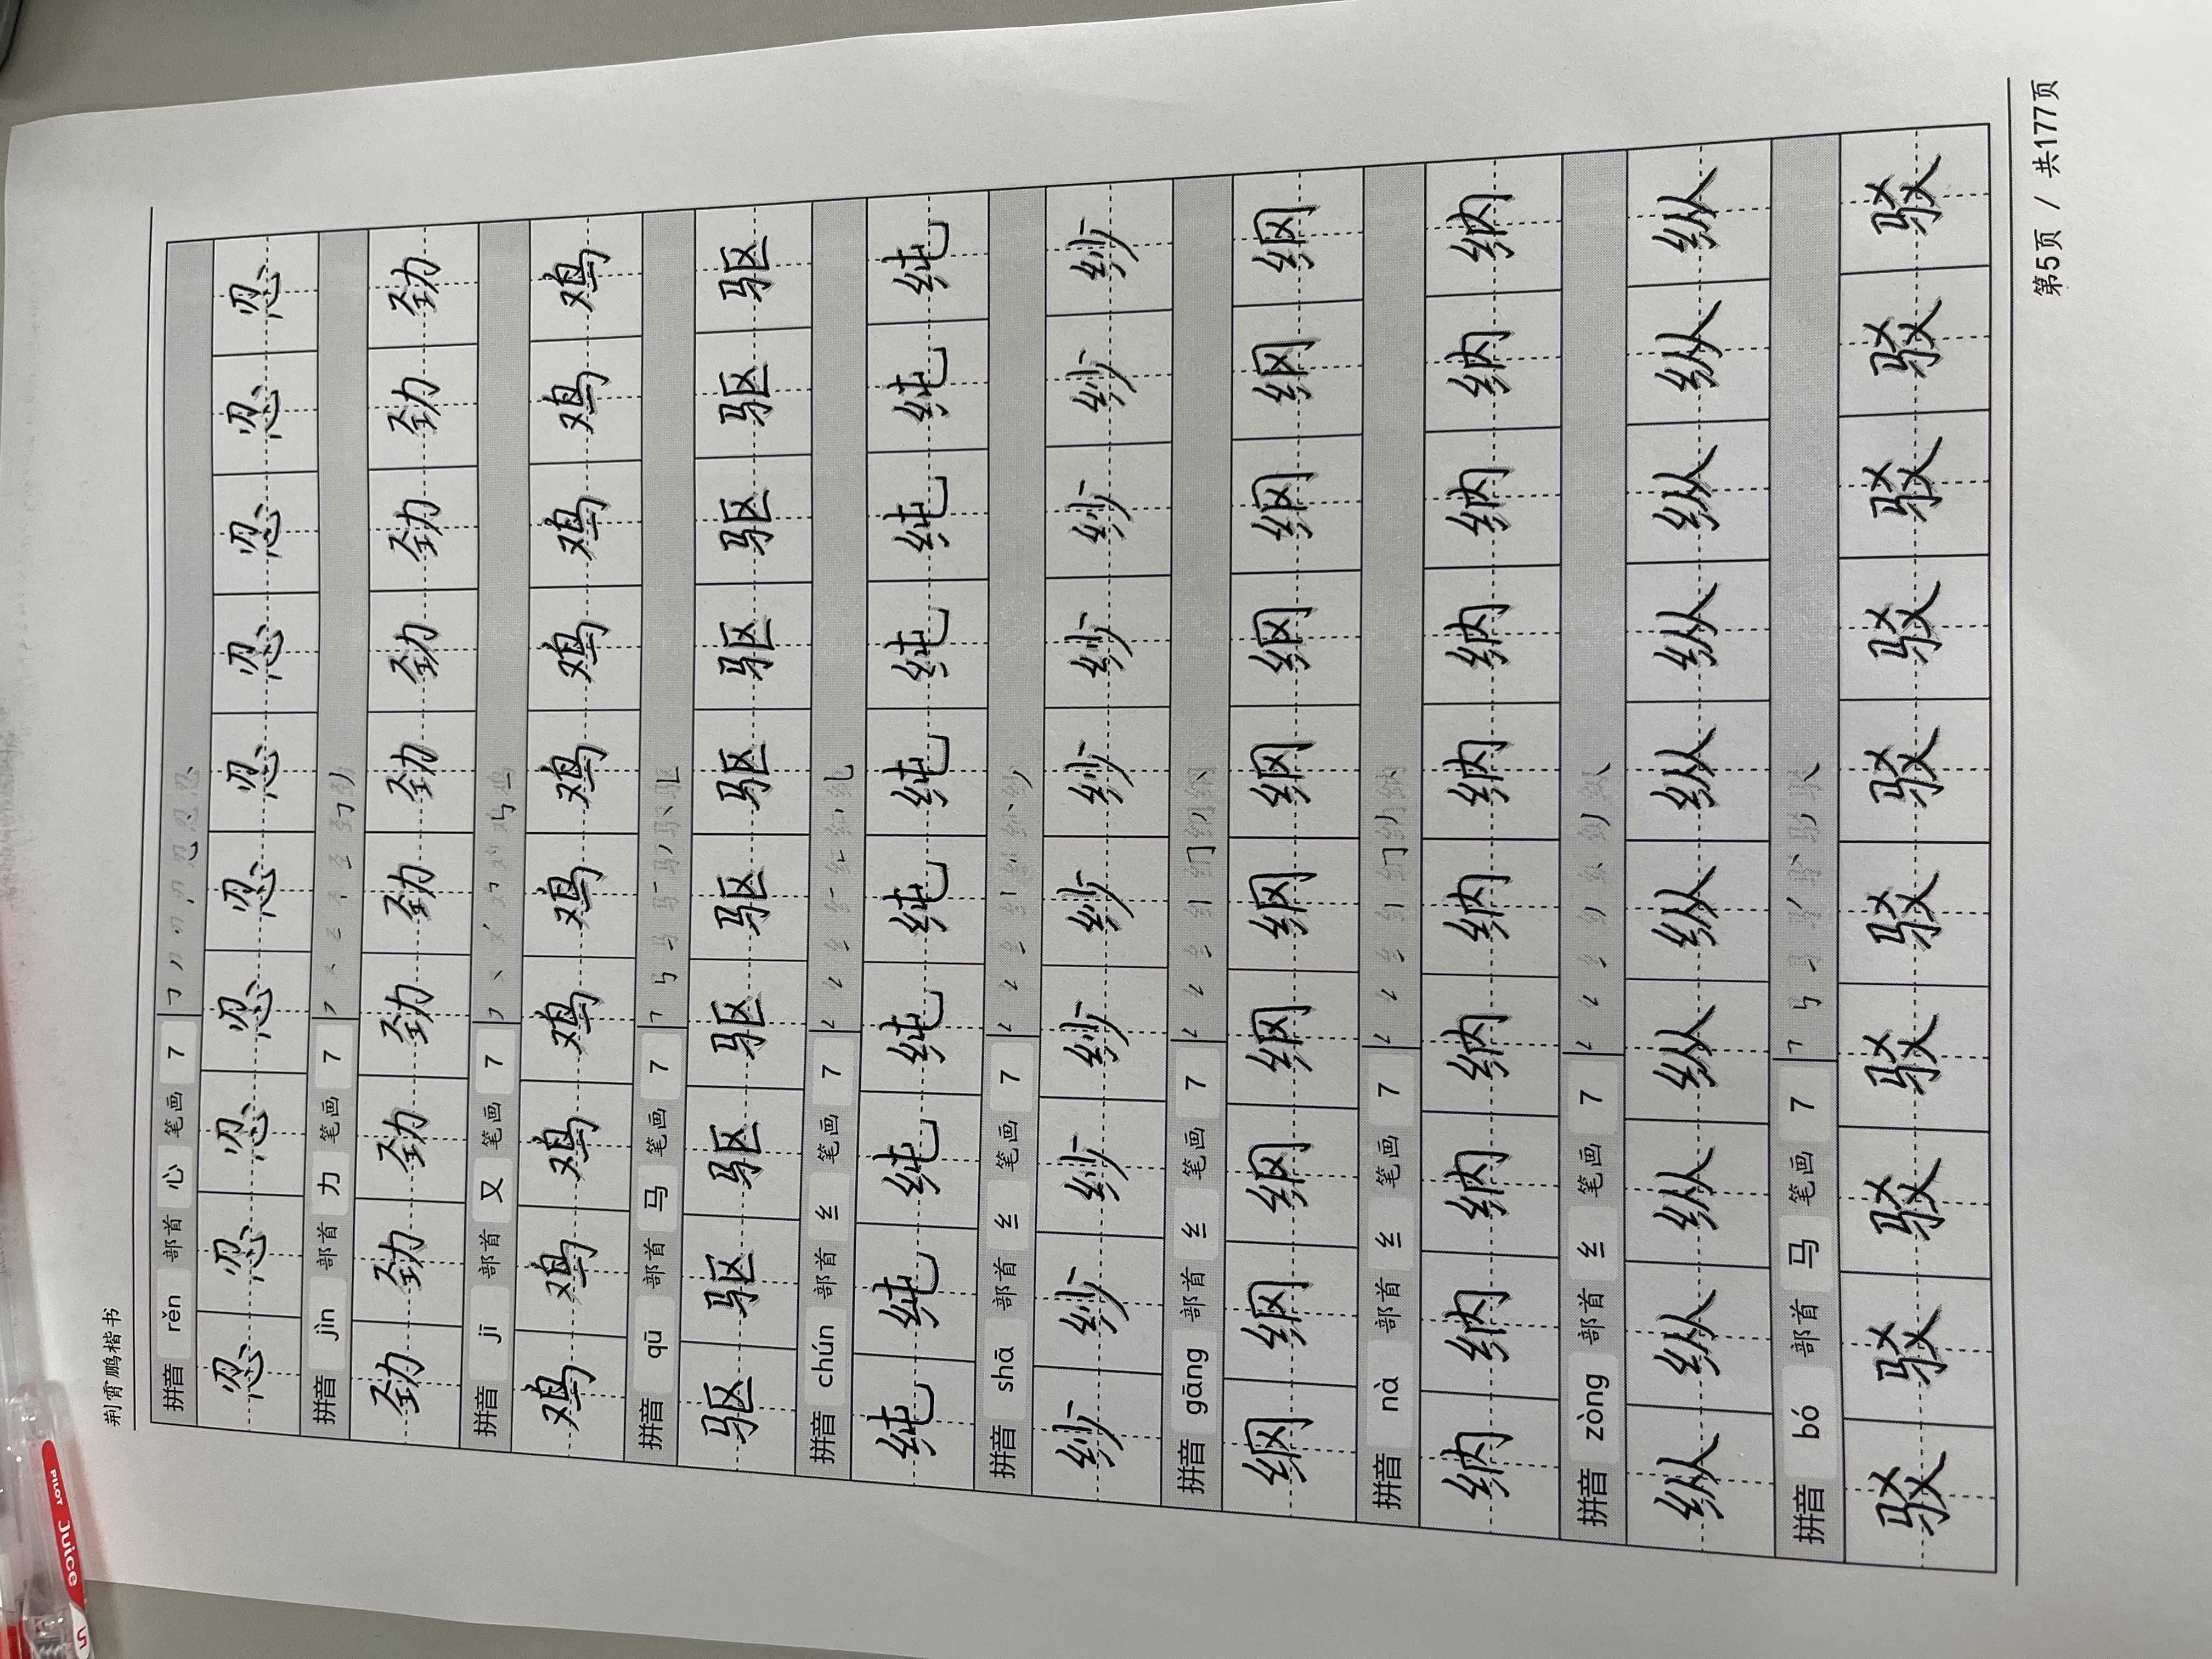 PILOT Juice 5
荆霄鹏楷书
拼音 rěn 部首 心 笔画 7
忍 忍 忍 忍 忍 忍 忍 忍 忍 忍
拼音 jìn 部首 力 笔画 7
劲 劲 劲 劲 劲 劲 劲 劲 劲 劲
拼音 jī 部首 又 笔画 7
鸡 鸡 鸡 鸡 鸡 鸡 鸡 鸡 鸡 鸡
拼音 qū 部首 马 笔画 7
驱 驱 驱 驱 驱 驱 驱 驱 驱 驱
拼音 chún 部首 纟 笔画 7
纯 纯 纯 纯 纯 纯 纯 纯 纯 纯
拼音 shā 部首 纟 笔画 7
纱 纱 纱 纱 纱 纱 纱 纱 纱 纱
拼音 gāng 部首 纟 笔画 7
纲 纲 纲 纲 纲 纲 纲 纲 纲 纲
拼音 nà 部首 纟 笔画 7
纳 纳 纳 纳 纳 纳 纳 纳 纳 纳
拼音 zòng 部首 纟 笔画 7
纵 纵 纵 纵 纵 纵 纵 纵 纵 纵
拼音 bó 部首 马 笔画 7
驳 驳 驳 驳 驳 驳 驳 驳 驳 驳
第5页 / 共177页